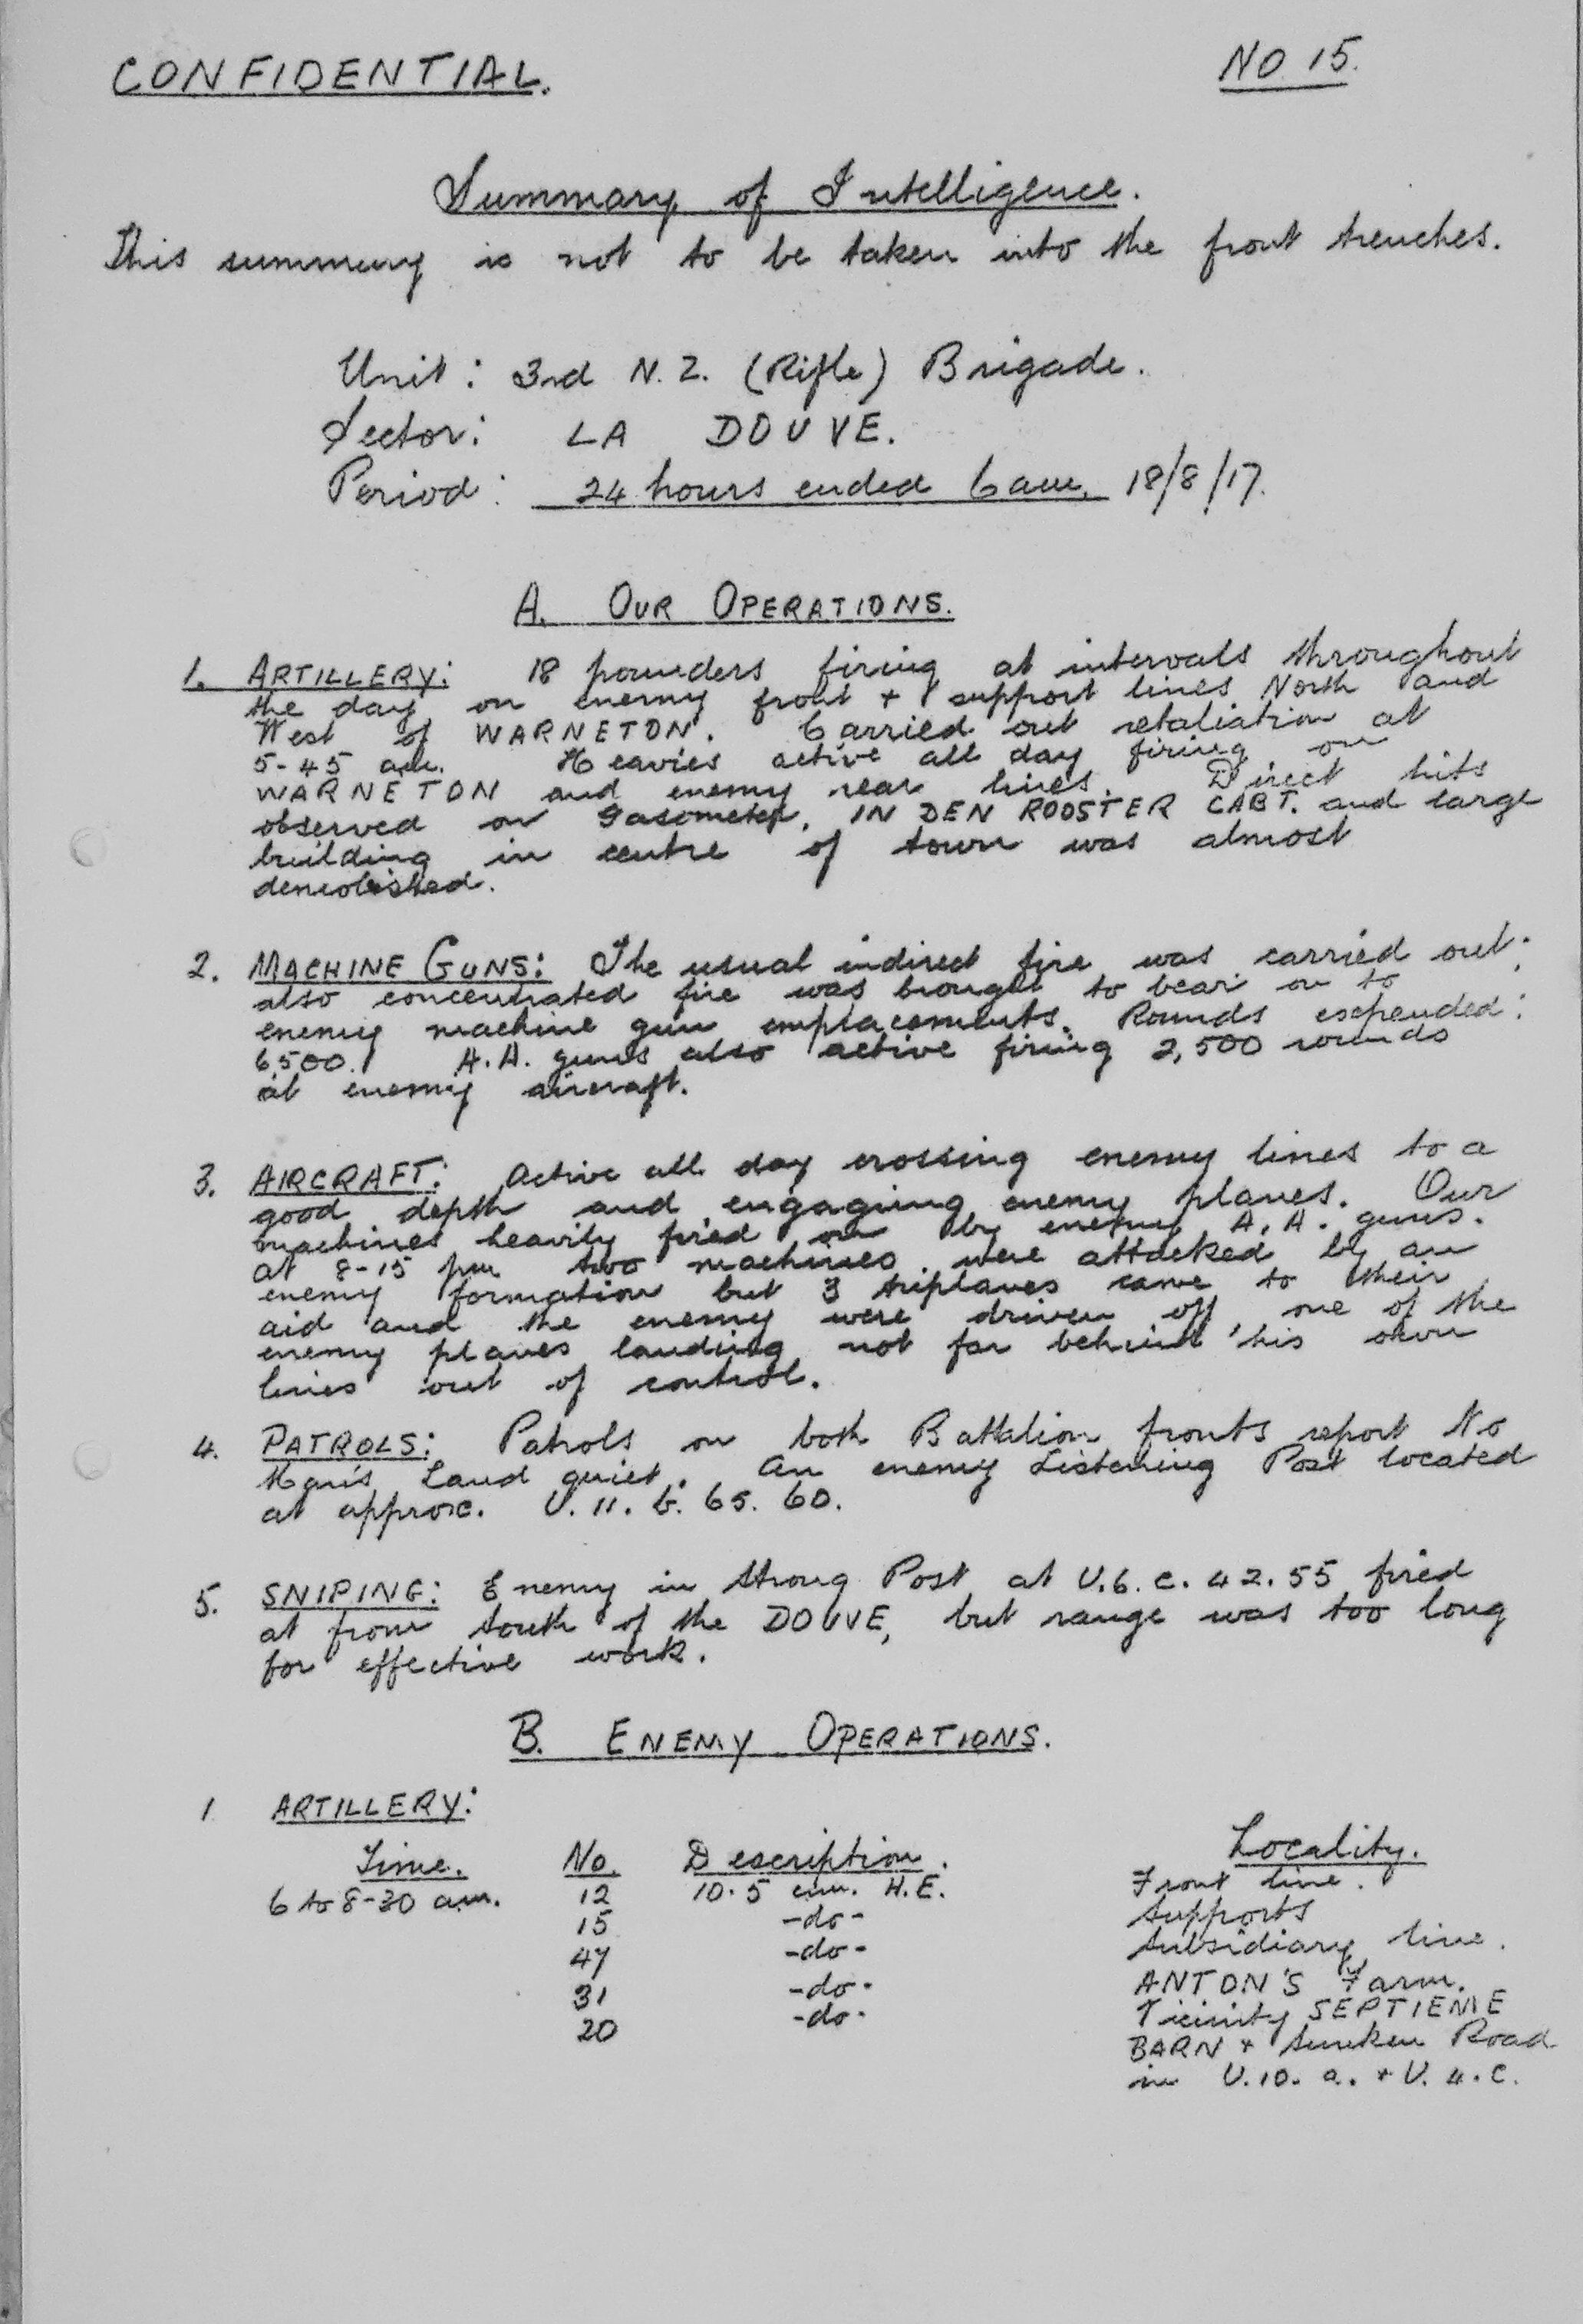 CONFIDENTIAL.
NO 15.
Summary of Intelligence.
This summary is not to be taken into the front trenches.
Unit: 3rd N.Z. (Rifle) Brigade.
Sector: LA DOUVE.
Period: 24 hours ended 6 am. 18/8/17.
A. OUR OPERATIONS.
1. ARTILLERY: 18 pounders firing at intervals throughout
the day on enemy front + support lines North and
West of WARNETON. Carried out retaliation at
5-45 am. Heavies active all day firing on
WARNETON and enemy rear lines. Direct hits
observed on Gasometer, IN DEN ROOSTER CABT. and large
building in centre of town was almost
demolished.
2. MACHINE GUNS: The usual indirect fire was carried out;
also concentrated fire was brought to bear on to
enemy machine gun emplacements. Rounds expended:
6,500. A.A. guns also active firing 2,500 rounds
at enemy aircraft.
3. AIRCRAFT: Active all day crossing enemy lines to a
good depth and engaging enemy planes. Our
machines heavily fired on by enemy A.A. guns.
At 8-15 pm two machines were attacked by an
enemy formation but 3 triplanes came to their
aid and the enemy were driven off one of the
enemy planes landing not far behind his own
lines out of control.
4. PATROLS: Patrols on both Battalion fronts report No
Man's Land quiet. An enemy Listening Post located
at approx. U.11.b.65.60.
5. SNIPING: Enemy in Strong Post at U.6.c.42.55 fired
at from South of the DOUVE, but range was too long
for effective work.
B. ENEMY OPERATIONS.
1 ARTILLERY:
Time. No. Description. Locality.
6 to 8-30 am. 12 10.5 cm. H.E. Front line.
15 -do- Supports
47 -do- Subsidiary line.
31 -do- ANTON'S Farm.
20 -do- Vicinity SEPTIEME
BARN + Sunken Road
in U.10.a. + U.4.C.